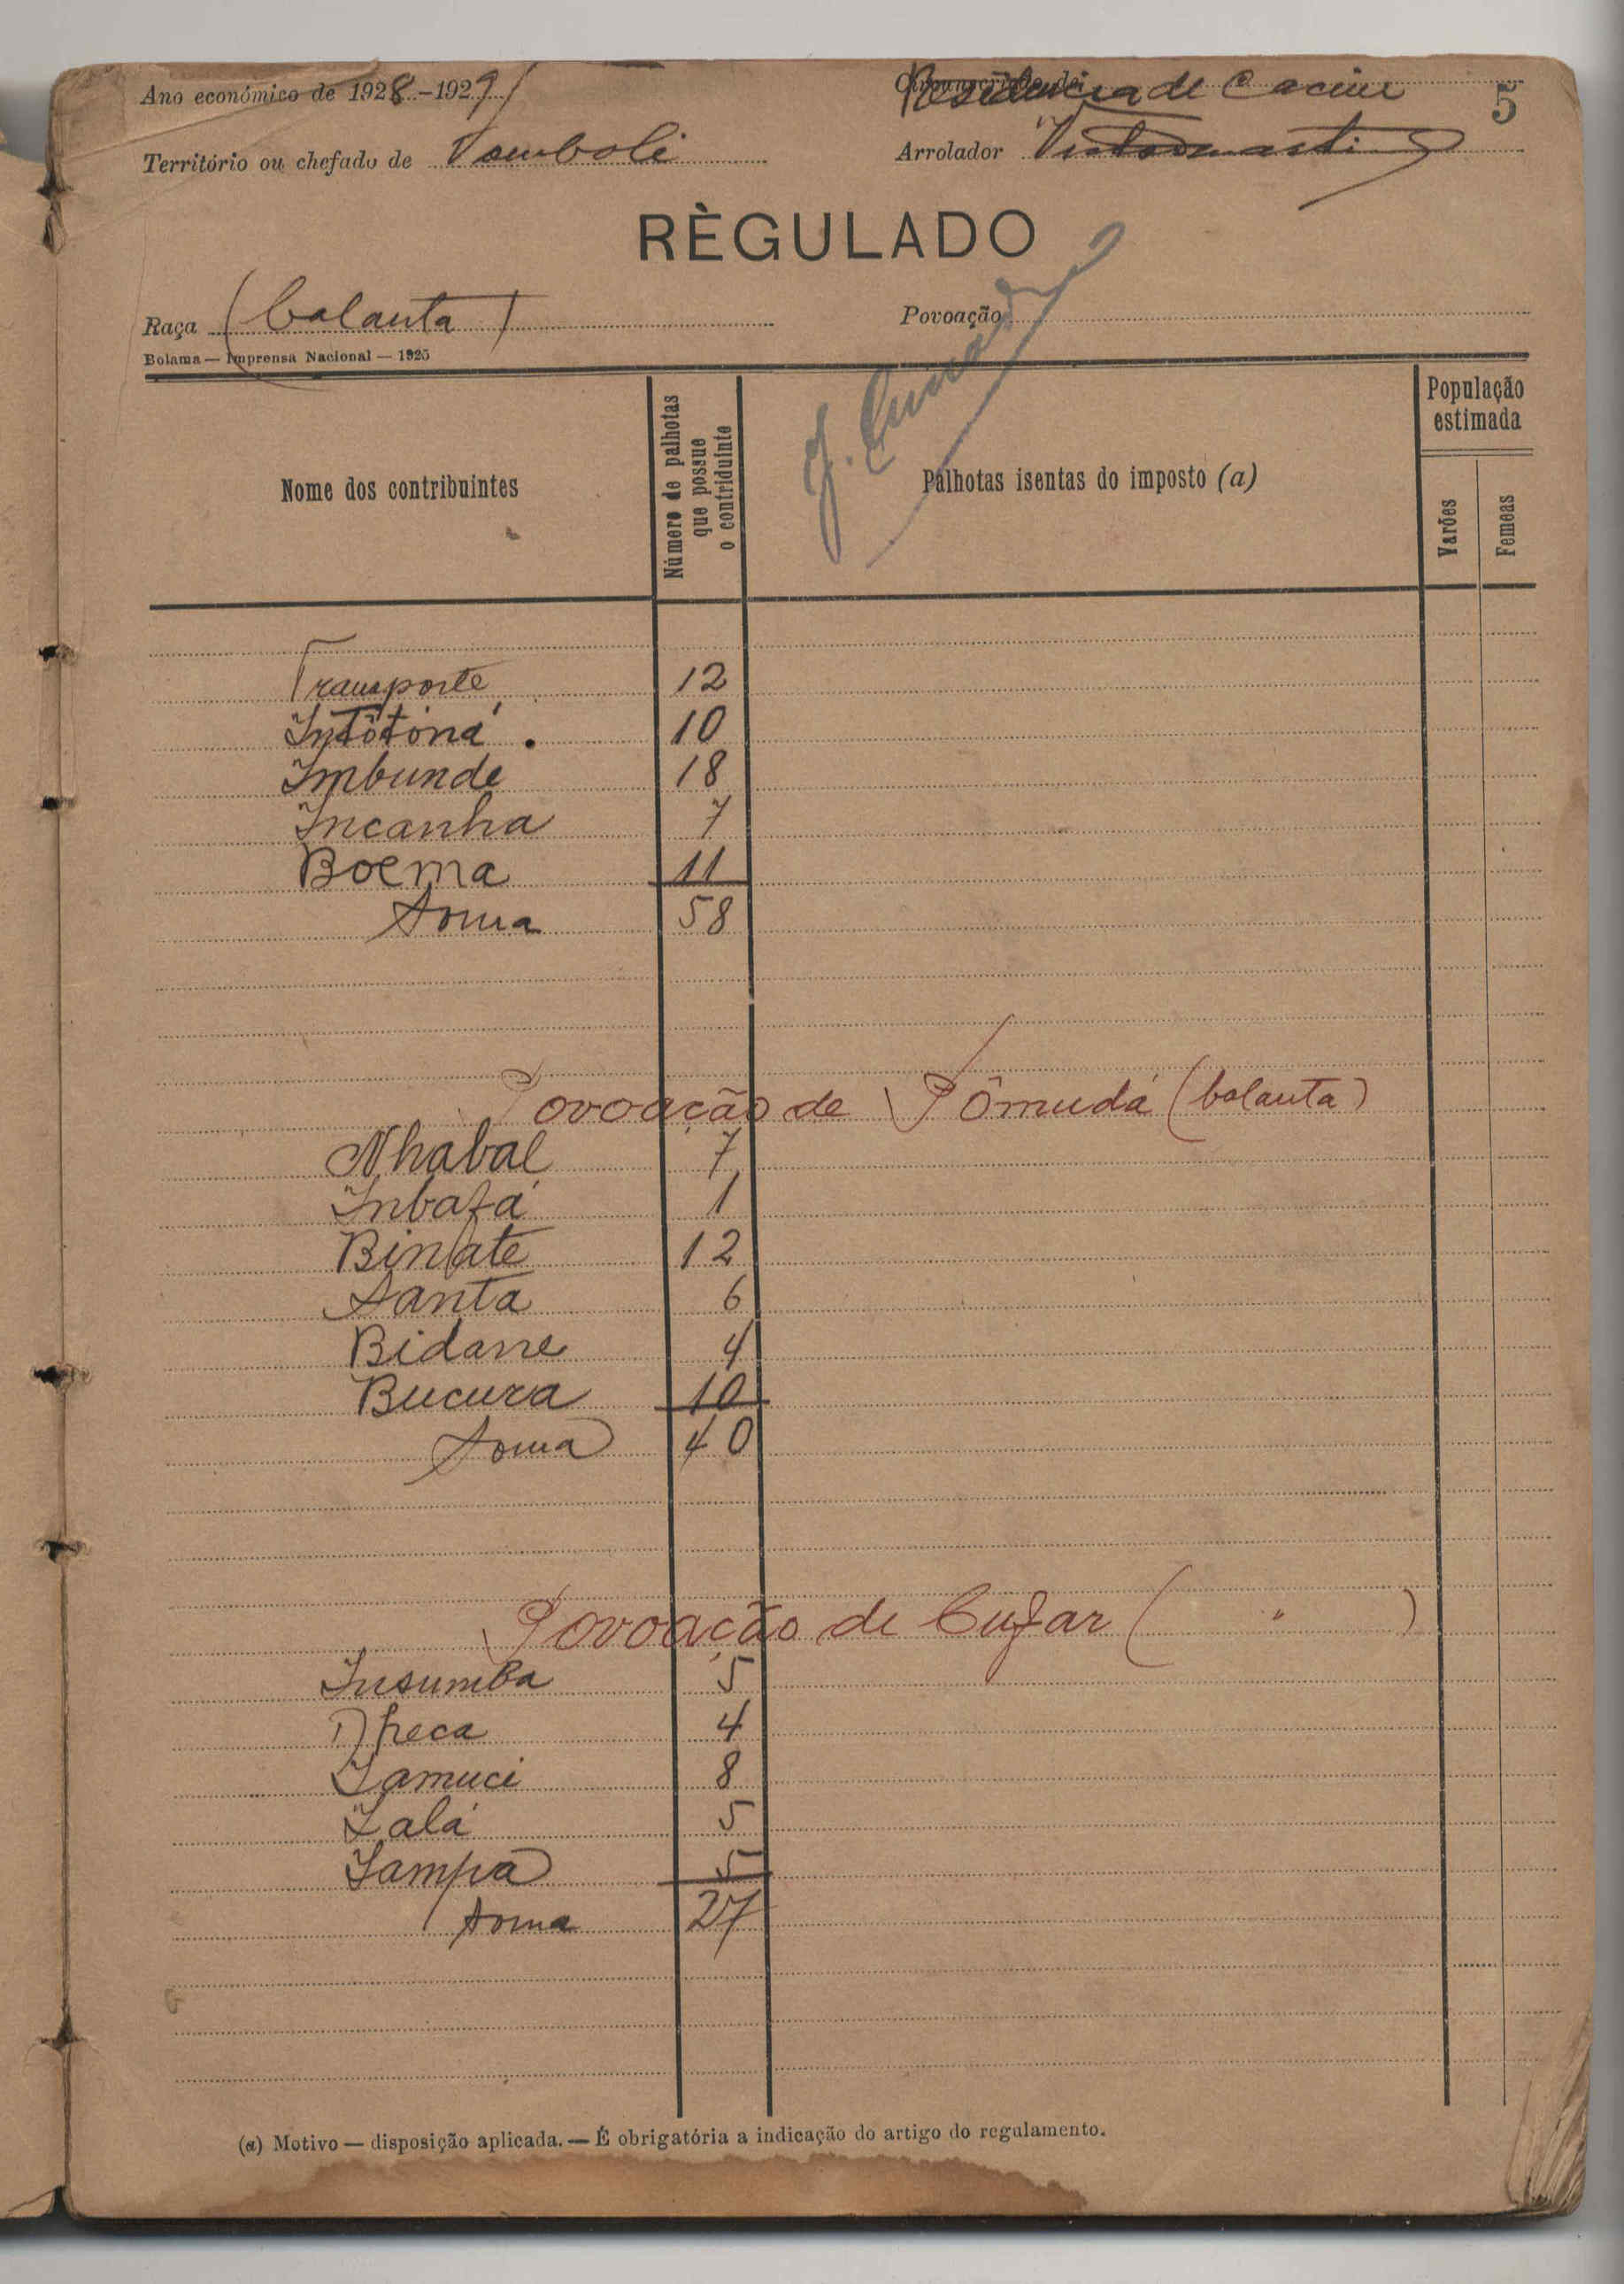 Ano económico de 1928-1929
Residencia de Cacine
5
Território ou chefado de
Arrolador
RÈGULADO
Raça (balanta)
Povoação
Bolama — Imprensa Nacional — 1925
Nome dos contribuintes
Número de palhotas que possue o contriduinte
Palhotas isentas do imposto (a)
População estimada
Varões
Femeas
Transporte 12
Intôtoná . 10
Imbunde 18
Incanha 7
Boema 11
Soma 58
Povoação de Pômudá (balanta)
Nhabal 7
Inbafá 1
Binhate 12
Santa 6
Bidanne 4
Bucura 10
Soma 40
Povoação de Cufar ( " )
Insumba 5
4
Iamuci 8
Lalá 5
Iampa 5
Soma 27
(a) Motivo — disposição aplicada. — É obrigatória a indicação do artigo do regulamento.